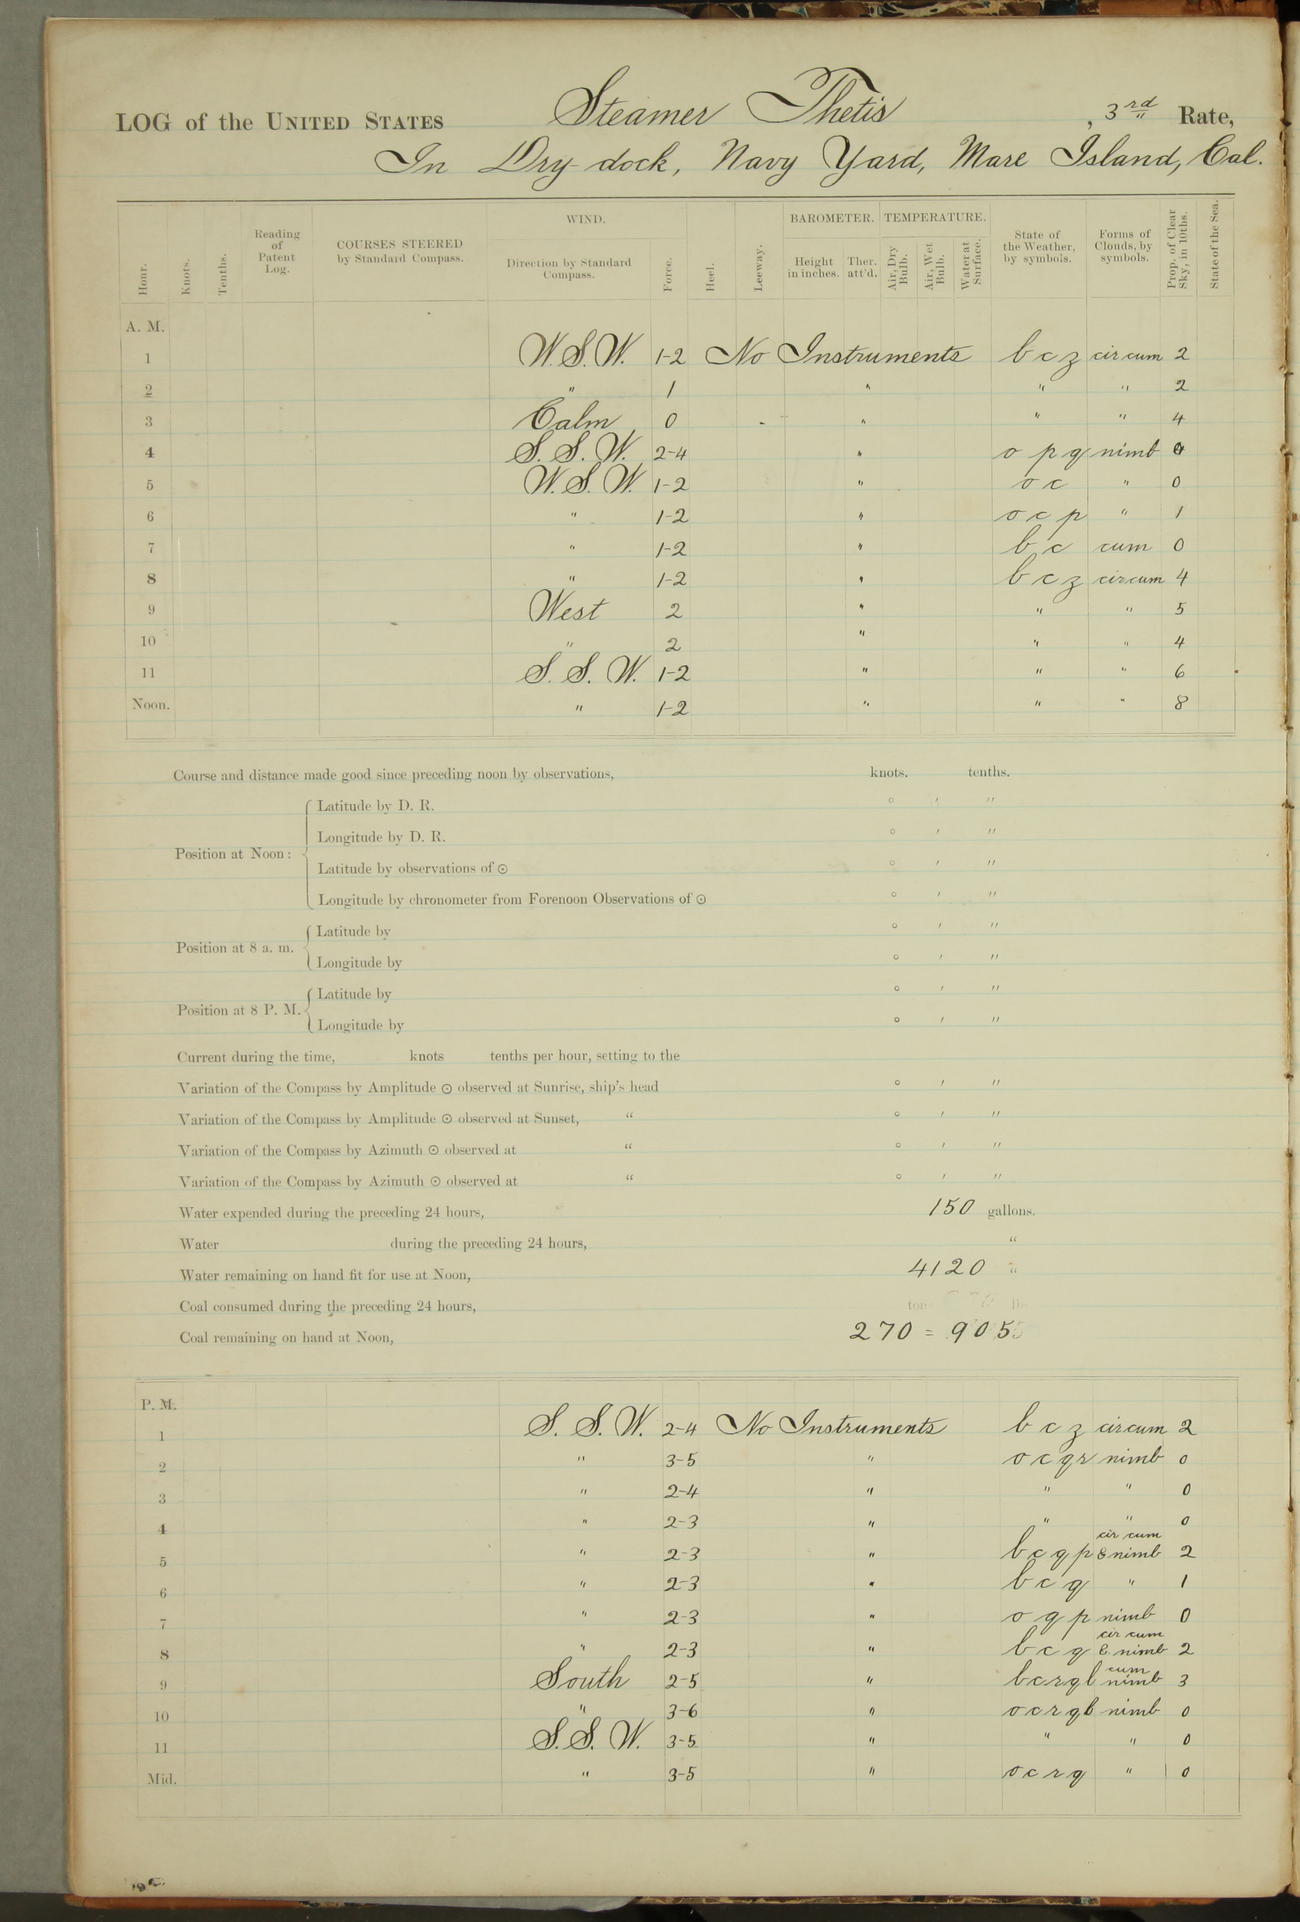 LOG of the UNITED STATES Steamer Thetis, 3rd Rate,
In Dry dock, Navy Yard, Mare Island, Cal.
Hour. Knots. Tenths. Reading of Patent Log. COURSES STEERED by Standard Compass. WIND. Direction by Standard Compass. Force. Heel. Leeway. BAROMETER. Height in inches. Ther. att'd. TEMPERATURE. Air, Dry Bulb. Air, Wet Bulb. Water at Surface. State of the Weather, by symbols. Forms of Clouds, by symbols. Prop. of Clear Sky, in 10ths. State of the Sea.
A. M.
1 W.S.W. 1-2 No Instruments b c z cir cum 2
2 " 1 " " " 2
3 Calm 0 " " " 4
4 S. S. W. 2-4 " o p q nimb 0
5 W. S. W. 1-2 " o c " 0
6 " 1-2 " o c p " 1
7 " 1-2 " b c cum 0
8 " 1-2 " b c z cir cum 4
9 West 2 " " " 5
10 " 2 " " " 4
11 S. S. W. 1-2 " " " 6
Noon. " 1-2 " " " 8
Course and distance made good since preceding noon by observations, knots. tenths.
Position at Noon:
Latitude by D. R. ° ' "
Longitude by D. R. ° ' "
Latitude by observations of ☉ ° ' "
Longitude by chronometer from Forenoon Observations of ☉ ° ' "
Position at 8 a. m.
Latitude by ° ' "
Longitude by ° ' "
Position at 8 P. M.
Latitude by ° ' "
Longitude by ° ' "
Current during the time, knots tenths per hour, setting to the
Variation of the Compass by Amplitude ☉ observed at Sunrise, ship's head ° ' "
Variation of the Compass by Amplitude ☉ observed at Sunset, “ ° ' "
Variation of the Compass by Azimuth ☉ observed at “ ° ' "
Variation of the Compass by Azimuth ☉ observed at “ ° ' "
Water expended during the preceding 24 hours, 150 gallons.
Water during the preceding 24 hours, “
Water remaining on hand fit for use at Noon, 4120 “
Coal consumed during the preceding 24 hours, tons
Coal remaining on hand at Noon, 270 = 905
P. M.
1 S. S. W. 2-4 No Instruments b c z cir cum 2
2 " 3-5 " o c q r nimb 0
3 " 2-4 " " " 0
4 " 2-3 " " " 0
5 " 2-3 " b c q p cir cum & nimb 2
6 " 2-3 " b c q " 1
7 " 2-3 " o q p nimb 0
8 " 2-3 " b c q cir cum & nimb 2
9 South 2-5 " b c r q l cum nimb 3
10 " 3-6 " o c r q l nimb 0
11 S. S. W. 3-5 " " " 0
Mid. " 3-5 " o c r q " 0